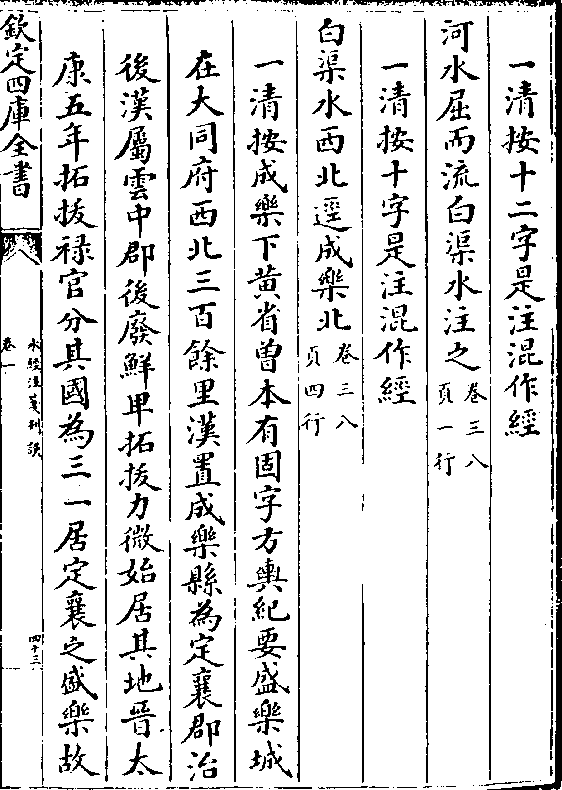 一清按十二字是注混作經
河水屈而流白渠水注之卷三八頁一行
一清按十字是注混作經
白渠水西北逕成樂北卷三八頁四行
一清按成樂下黄省曾本有固字方輿紀要盛樂城
在大同府西北三百餘里漢置成樂縣為定襄郡治
後漢屬雲中郡後廢鮮卑拓拔力微始居其地晉太
康五年拓拔祿官分其國為三一居定襄之盛樂故
欽定四庫全書
水經注箋刊誤
卷一
四十三